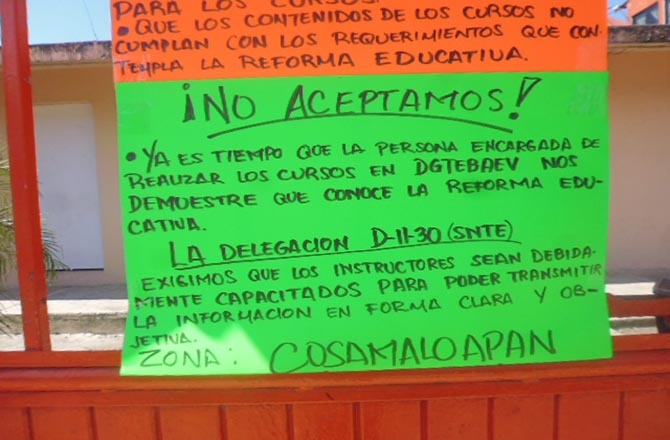 PARA LOS CURSOS.
• QUE LOS CONTENIDOS DE LOS CURSOS NO
CUMPLAN CON LOS REQUERIMIENTOS QUE CON-
TEMPLA LA REFORMA EDUCATIVA.
¡NO ACEPTAMOS!
• YA ES TIEMPO QUE LA PERSONA ENCARGADA DE
REALIZAR LOS CURSOS EN DGTEBAEV NOS
DEMUESTRE QUE CONOCE LA REFORMA EDU-
CATIVA.
LA DELEGACION D-II-30 (SNTE)
EXIGIMOS QUE LOS INSTRUCTORES SEAN DEBIDA-
MENTE CAPACITADOS PARA PODER TRANSMITIR
LA INFORMACION EN FORMA CLARA Y OB-
JETIVA.
ZONA: COSAMALOAPAN